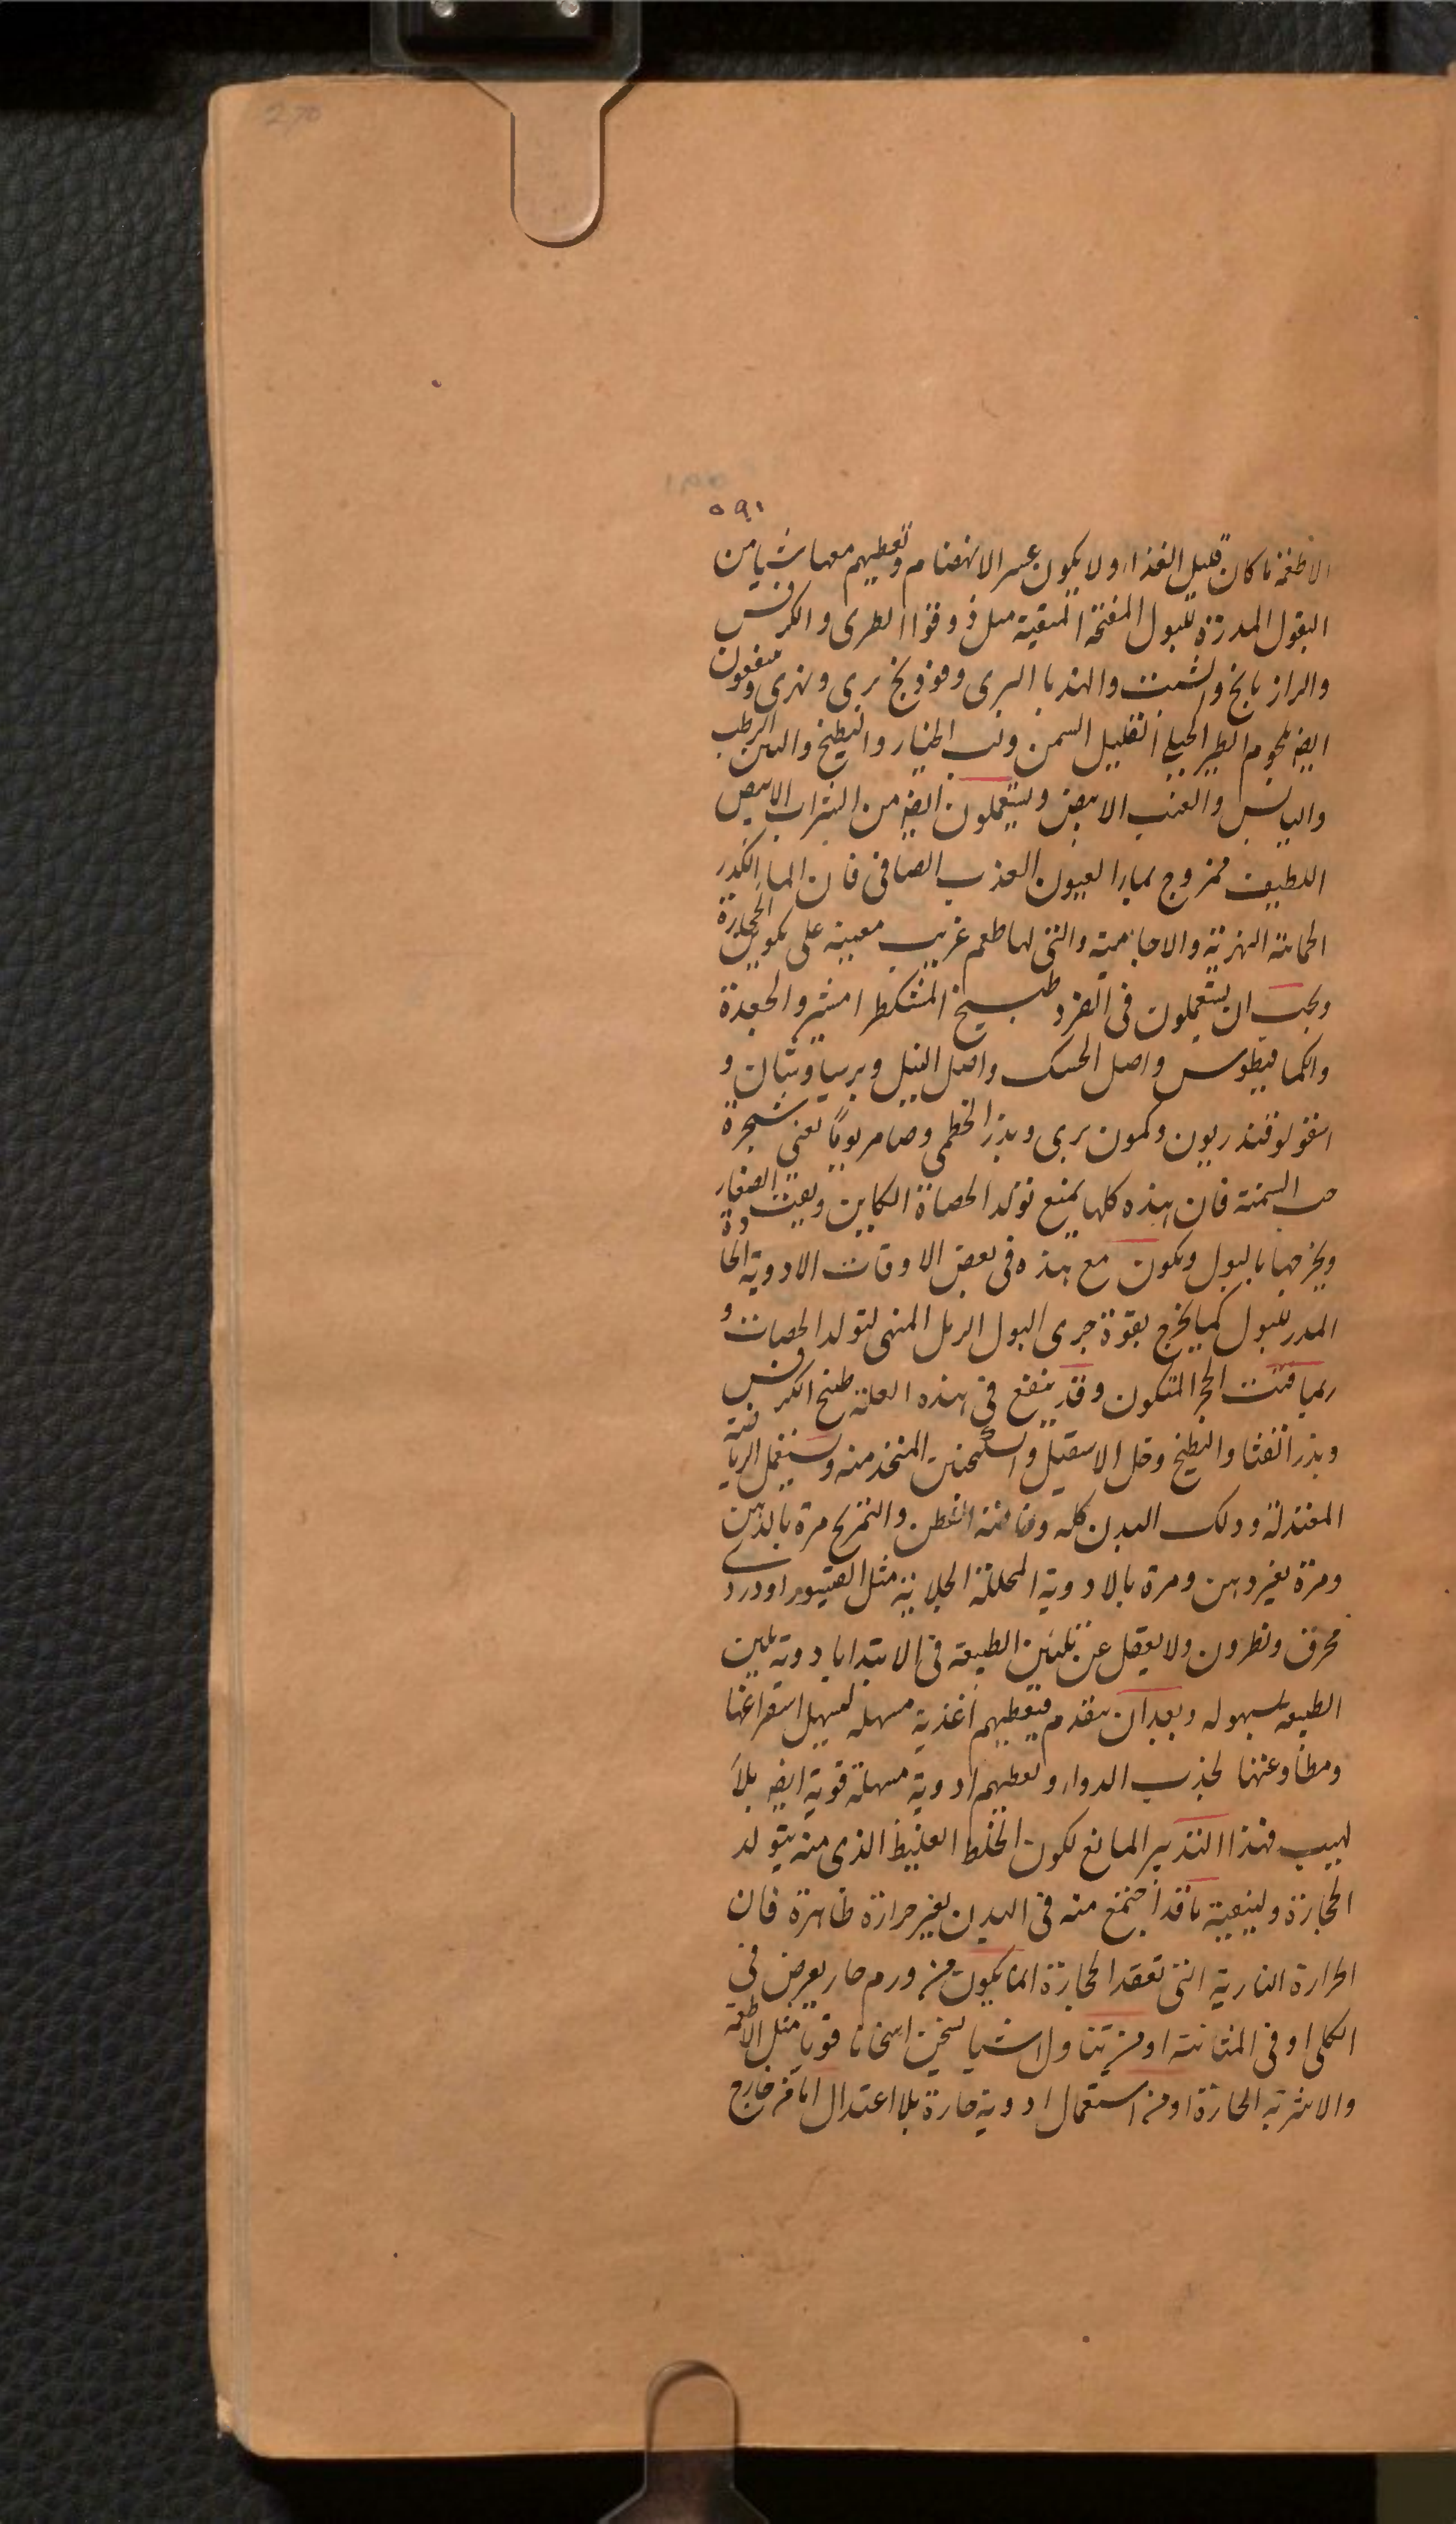 270
٥٩١
الاطعمة ما كان قليل الغذاء ولا يكون عسر الانهضام وتعطيهم معها شيا من
البقول المدرّة للبول المفتحة المنقية مثل ذوقوا الطرى والكرفس
والرازيانج والشبت والهندبا البرى وفوذنج برى ونهرى وينفعون
ايضا لحوم الطير الجبلي القليل السمن ولب الخيار والبطيخ والتين الرطب
واليابس والعنب الابيض ويستعملون ايضا من الشراب الابيض
اللطيف ممزوج بماء العيون العذب الصافى فان الما الكدر
الحمائة النهرية والاجامية والتى لها طعم غريب معينة على تكوين الحجارة
ويجب ان يستعملون فى الفرد طبيخ المشكطرامشير والجعدة
والكمافيطوس واصل الحسك واصل النيل وبرسياوشان و
اسقولوقندريون وكمون برى وبذر الخطمى وصامريوما يعنى شجرة
حب السمنة فان هذه كلها يمنع تولد الحصاة الكاين ويفتت الصغار
ويخرجها بالبول ويكون مع هذه فى بعض الاوقات الادوية الحادة
المدر للبول كميا يخرج بقوة جرى البول الرمل المنهى لتولد الحصات و
ربما فتت الحجر المتكون وقد ينفع فى هذه العلة طبخ الكرفس
وبذر القثا والبطيخ وخل الاسقيل والسكنجبين المتخذ منه ويستعمل الرياضة
المعتدلة ودلك البدن كله وخاصة القطن والتمريخ مرة بالدهن
ومرة بغير دهن ومرة بالادوية المحللة الجلائية مثل القيشور او دردى
محرق ونطرون ولا يغفل عن تليين الطبيعة فى الابتدا بادوية تلين
الطبيعة بسهولة وبعد ان يتقدم فيعطيهم اغذية مسهلة لسهيل استفراغها
ومطاوعتها لجذب الدواء ولعطيهم ادوية مسهلة قوية ايضا بلا
لهيب فهذا التدبير المانع لكون الخلط الغليظ الذى منه يتولد
الحجارة ولينقية ما قد اجتمع منه فى البدن بغير حرارة ظاهرة فان
الحرارة النارية التى تعقد الحجارة انما يكون من ورم حار يعرض فى
الكلى او فى المثانة او من تناول اشيا يسخن اسخانا قويا مثل الاطعمة
والاشربة الحارة او من استعمال ادوية حارة بلا اعتدال اما من خارج